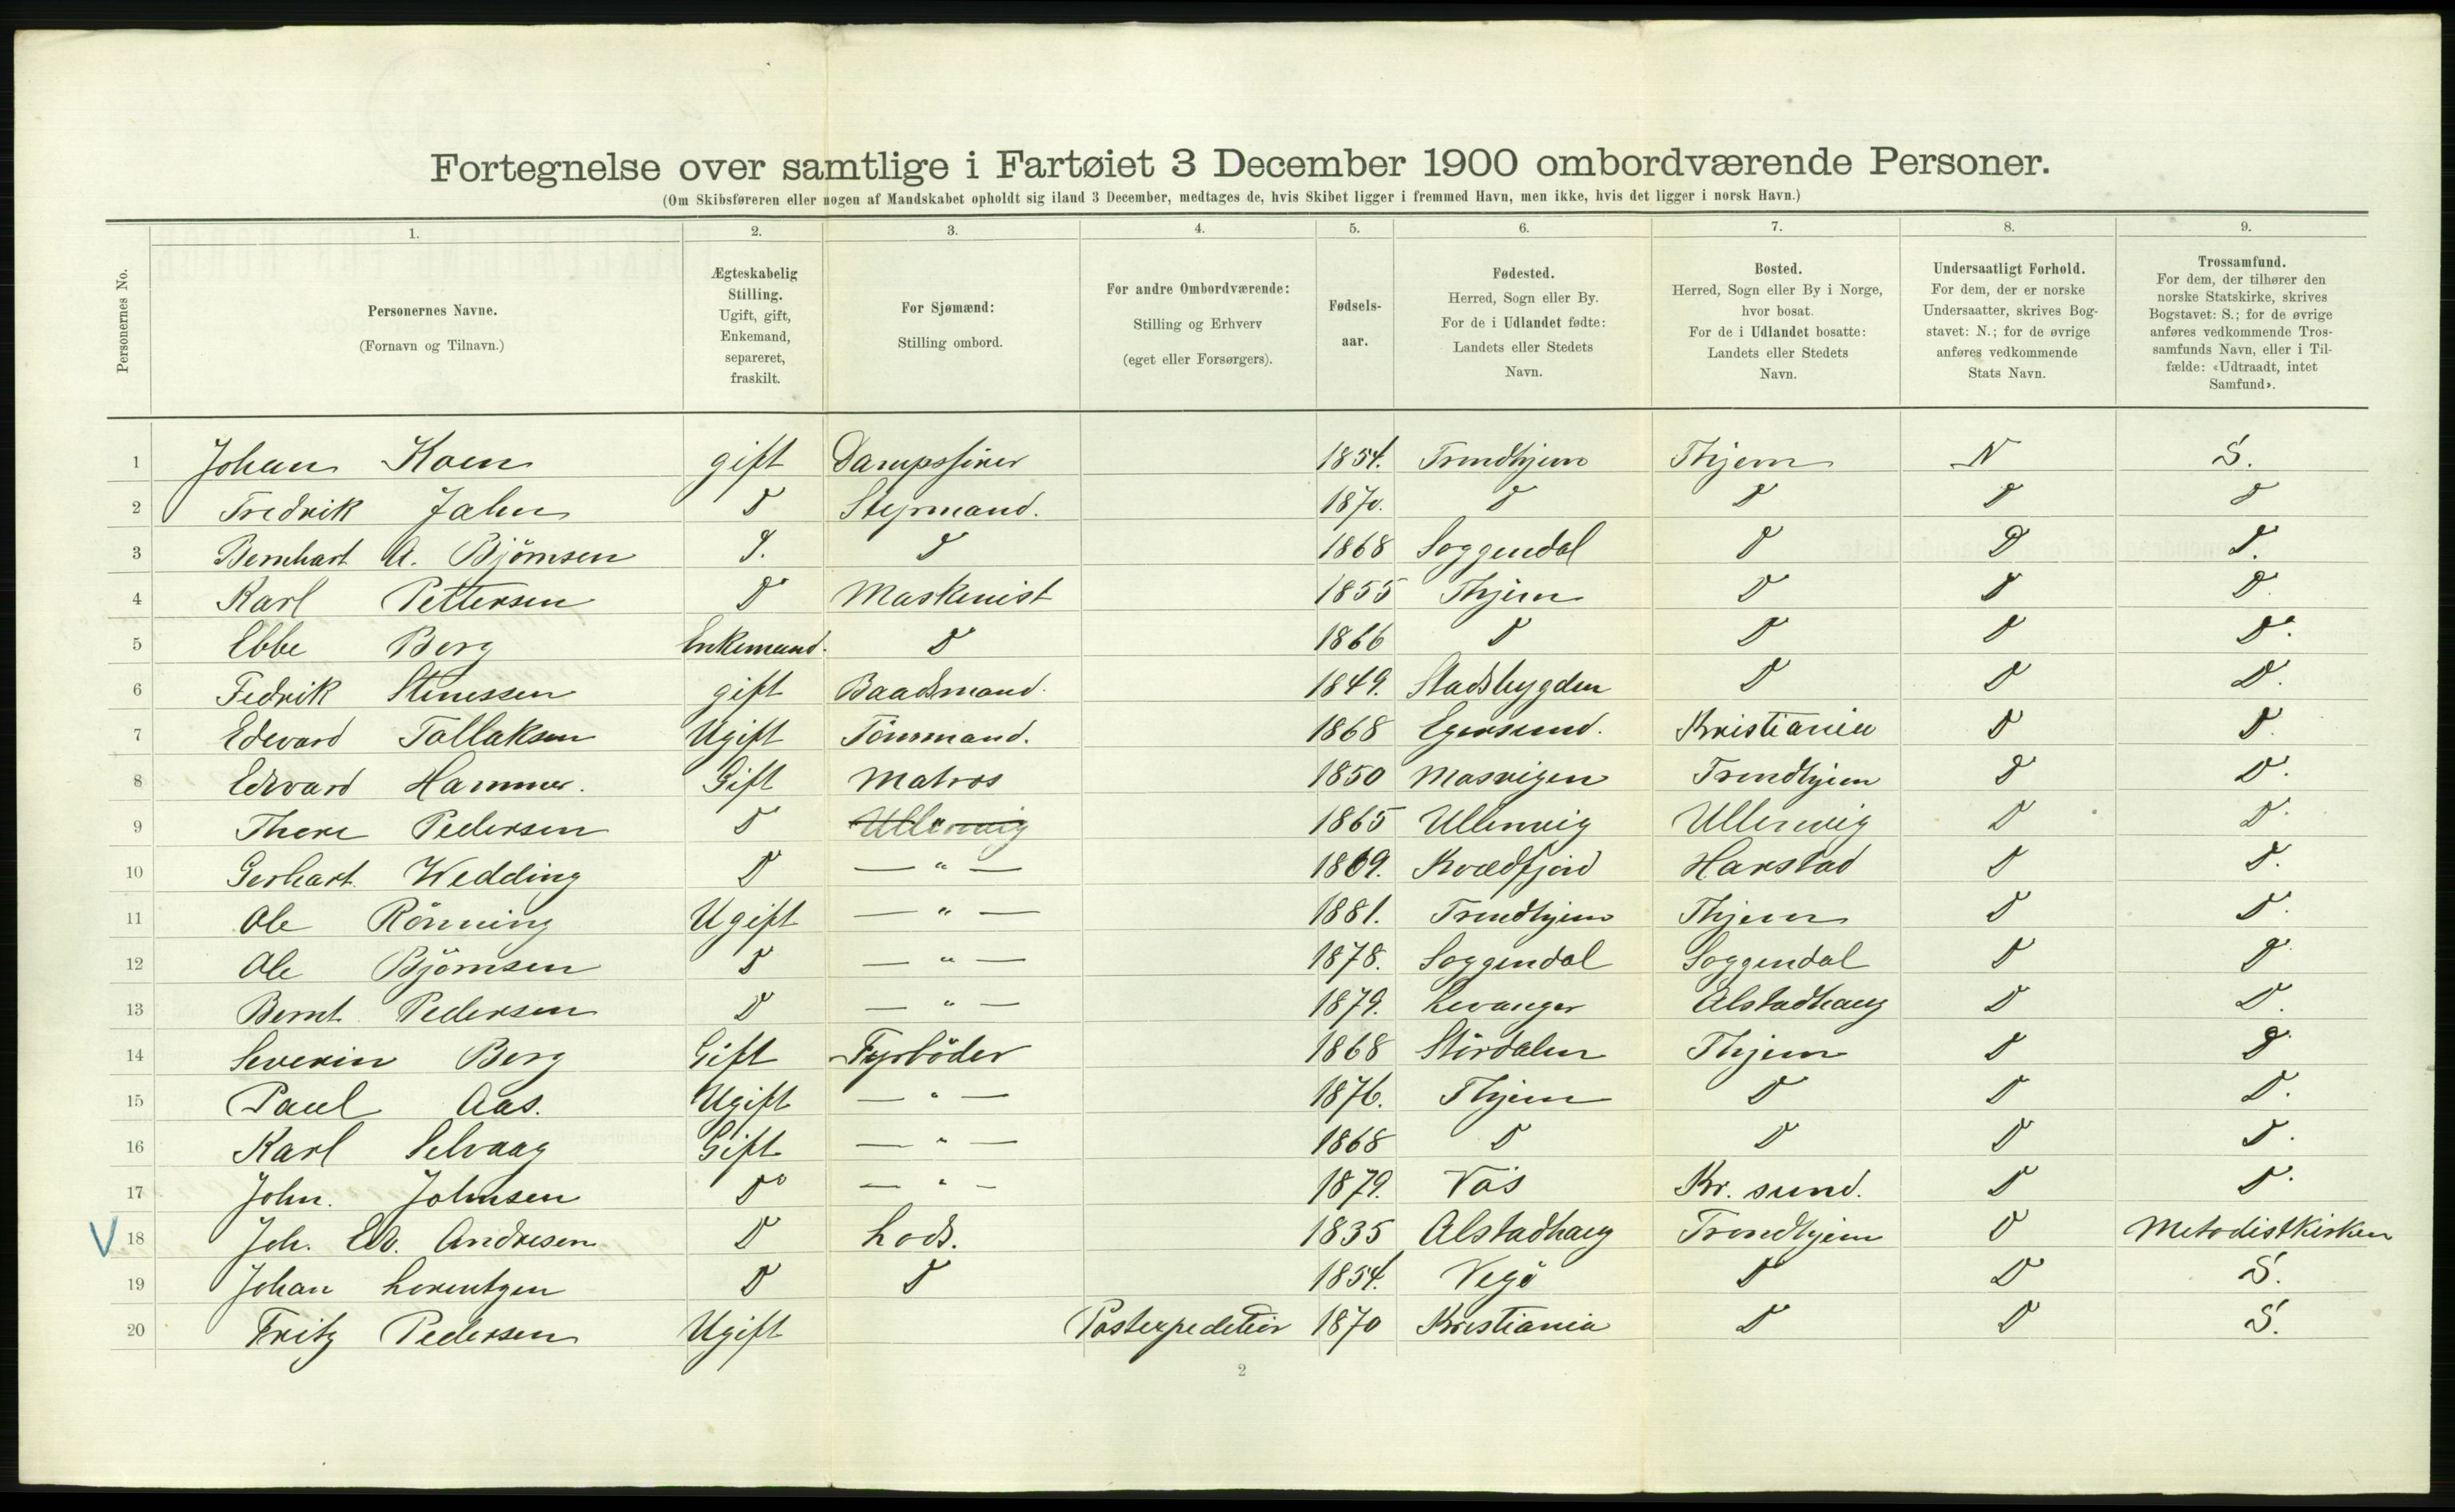 Fortegnelse over samtlige i Fartøiet 3 December 1900 ombordværende Personer.
(Om Skibsføreren eller nogen af Mandskabet opholdt sig iland 3 December, medtages de, hvis Skibet ligger i fremmed Havn, men ikke, hvis det ligger i norsk Havn.)
Personernes No.
1. 2. 3. 4. 5. 6. 7. 8. 9.
Personernes Navne.
(Fornavn og Tilnavn.)
Ægteskabelig
Stilling.
Ugift, gift,
Enkemand,
separeret,
fraskilt.
For Sjømænd:
Stilling ombord.
For andre Ombordværende:
Stilling og Erhverv
(eget eller Forsørgers).
Fødsels-
aar.
Fødested.
Herred, Sogn eller By.
For de i Udlandet fødte:
Landets eller Stedets
Navn.
Bosted.
Herred, Sogn eller By i Norge,
hvor bosat.
For de i Udlandet bosatte:
Landets eller Stedets
Navn.
Undersaatligt Forhold.
For dem, der er norske
Undersaatter, skrives Bog-
stavet: N.; for de øvrige
anføres vedkommende
Stats Navn.
Trossamfund.
For dem, der tilhører den
norske Statskirke, skrives
Bogstavet: S.; for de øvrige
anføres vedkommende Tros-
samfunds Navn, eller i Til-
fælde: «Udtraadt, intet
Samfund».
1 Johan gift 1854. Trondhjem Thjem N S.
2 Fredrik Jahn D Styrmand. 1870. D D D D
3 Bernhart A. Björnsen D 1868 Soggendal D D D.
4 Karl Pettersen D Maskinist 1855 Thjem D D D.
5 Ebbe Berg Enkemand. D 1866 D D D D.
6 Fedrik Stenessen gift Baadsmand. 1849. Stadsbygden D D D.
7 Edevard Tollaksen Ugift Tömmand. 1868 Egersund. Kristiania D D.
8 Edevard Hammer. Gift Matros 1850 Masvigen Trondhjem D D.
9 Thore Pedersen D Ullerwig 1865 Ullerwig Ullerwig D D.
10 Gerhart Wedding D — " — 1869. Kvædfjord Harstad D D.
11 Ole Rönning Ugift — " — 1881. Trondhjem Thjem D D.
12 Ole Björnsen D — " — 1878. Soggendal Soggendal D D
13 Bernt Pedersen D — " — 1879. Levanger Alstadhaug D D.
14 Severin Berg Gift Fyrböder 1868 Stördalen Thjem D D
15 Paul Aas. Ugift — " — 1876. Thjem D D D.
16 Karl Selvaag Gift — " — 1868 D D D D.
17 John. Johnsen Do — " — 1879. Kr. sund. D D.
V 18 Joh. Ed. Andresen D Lods. 1835 Alstadhaug Trondhjem D Metodistkirken
19 Johan Lorentzen D D 1854. Vegö D D S.
20 Fritz Pedersen Ugift Postexpeditiör 1870 Kristiania D D S.
2